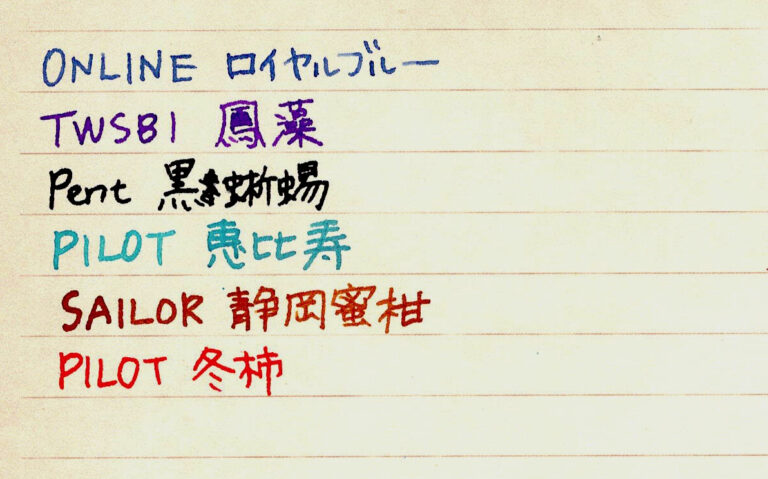 ONLINE ロイヤルブルー
TWSBI 鳳藻
Pent 黒蜥蜴
PILOT 恵比寿
SAILOR 静岡蜜柑
PILOT 冬柿